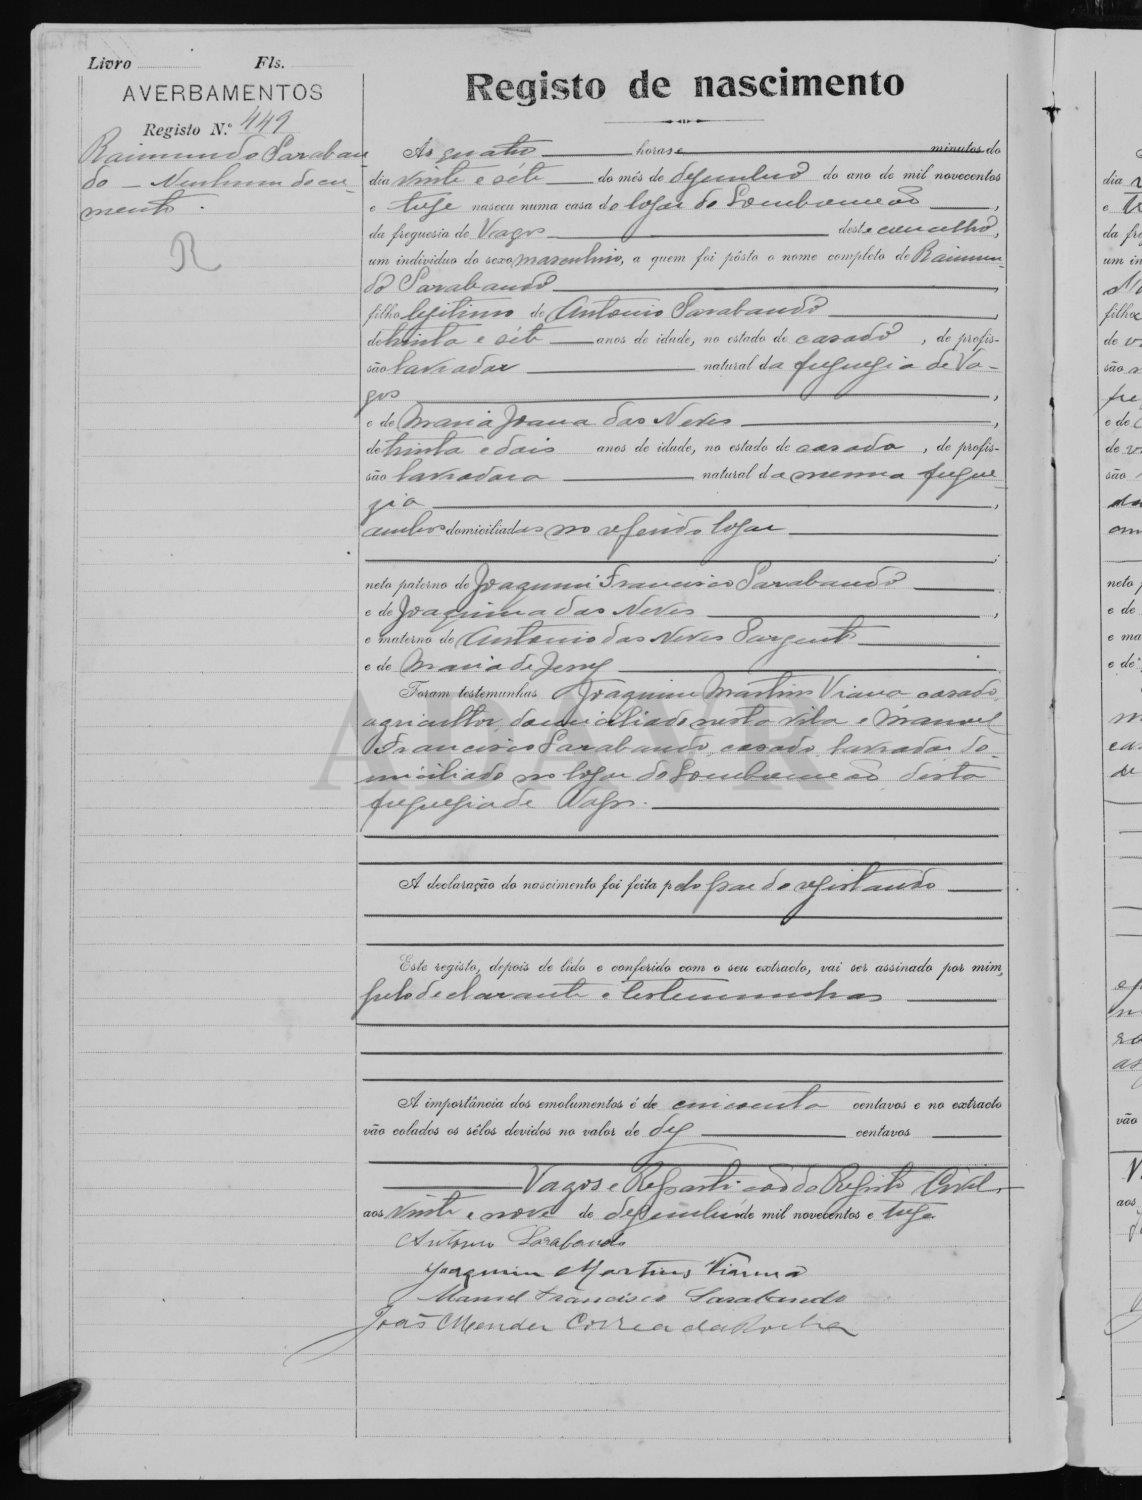 Livro Fls.
AVERBAMENTOS
Registo N.º 449
Raimundo Saraban-
do — Nenhum docu-
mento.
R
Registo de nascimento
Ás quatro horas e minutos do
dia vinte e sete do mês de dezembro do ano de mil novecentos
e treze nasceu numa casa do logar de Lombomeão,
da freguesia de Vagos deste concelho,
um indivíduo do sexo masculino, a quem foi pôsto o nome completo de Raimun-
do Sarabando,
filho legitimo de Antonio Sarabando,
de trinta e sete anos de idade, no estado de casado, de profis-
são lavrador natural da freguezia de Va-
gos,
e de Maria Joana das Neves,
de trinta e dois anos de idade, no estado de casada, de profis-
são lavradora natural da mesma fregue-
zia,
ambos domiciliados no referido logar
;
neto paterno de Joaquim Francisco Sarabando
e de Joaquina das Neves,
e materno de Antonio das Neves Sargento
e de Maria de Jesus.
Foram testemunhas Joaquim Martins Viana casado,
agricultor, domiciliado nesta vila e Manuel
Francisco Sarabando, casado, lavrador do-
miciliado no logar de Lombomeão desta
freguezia de Vagos.
ADAVR
A declaração do nascimento foi feita pelo pae do registando
Este registo, depois de lido e conferido com o seu extracto, vai ser assinado por mim,
pelo declarante e testemunhas
A importância dos emolumentos é de cincoenta centavos e no extracto
vão colados os sêlos devidos no valor de dez centavos
Vagos e Repartição do Registo Civil,
aos vinte e nove de dezembro de mil novecentos e treze.
Antonio Sarabando
Joaquim Martins Vianna
Manuel Francisco Sarabando
João Mendes Correia da Rocha